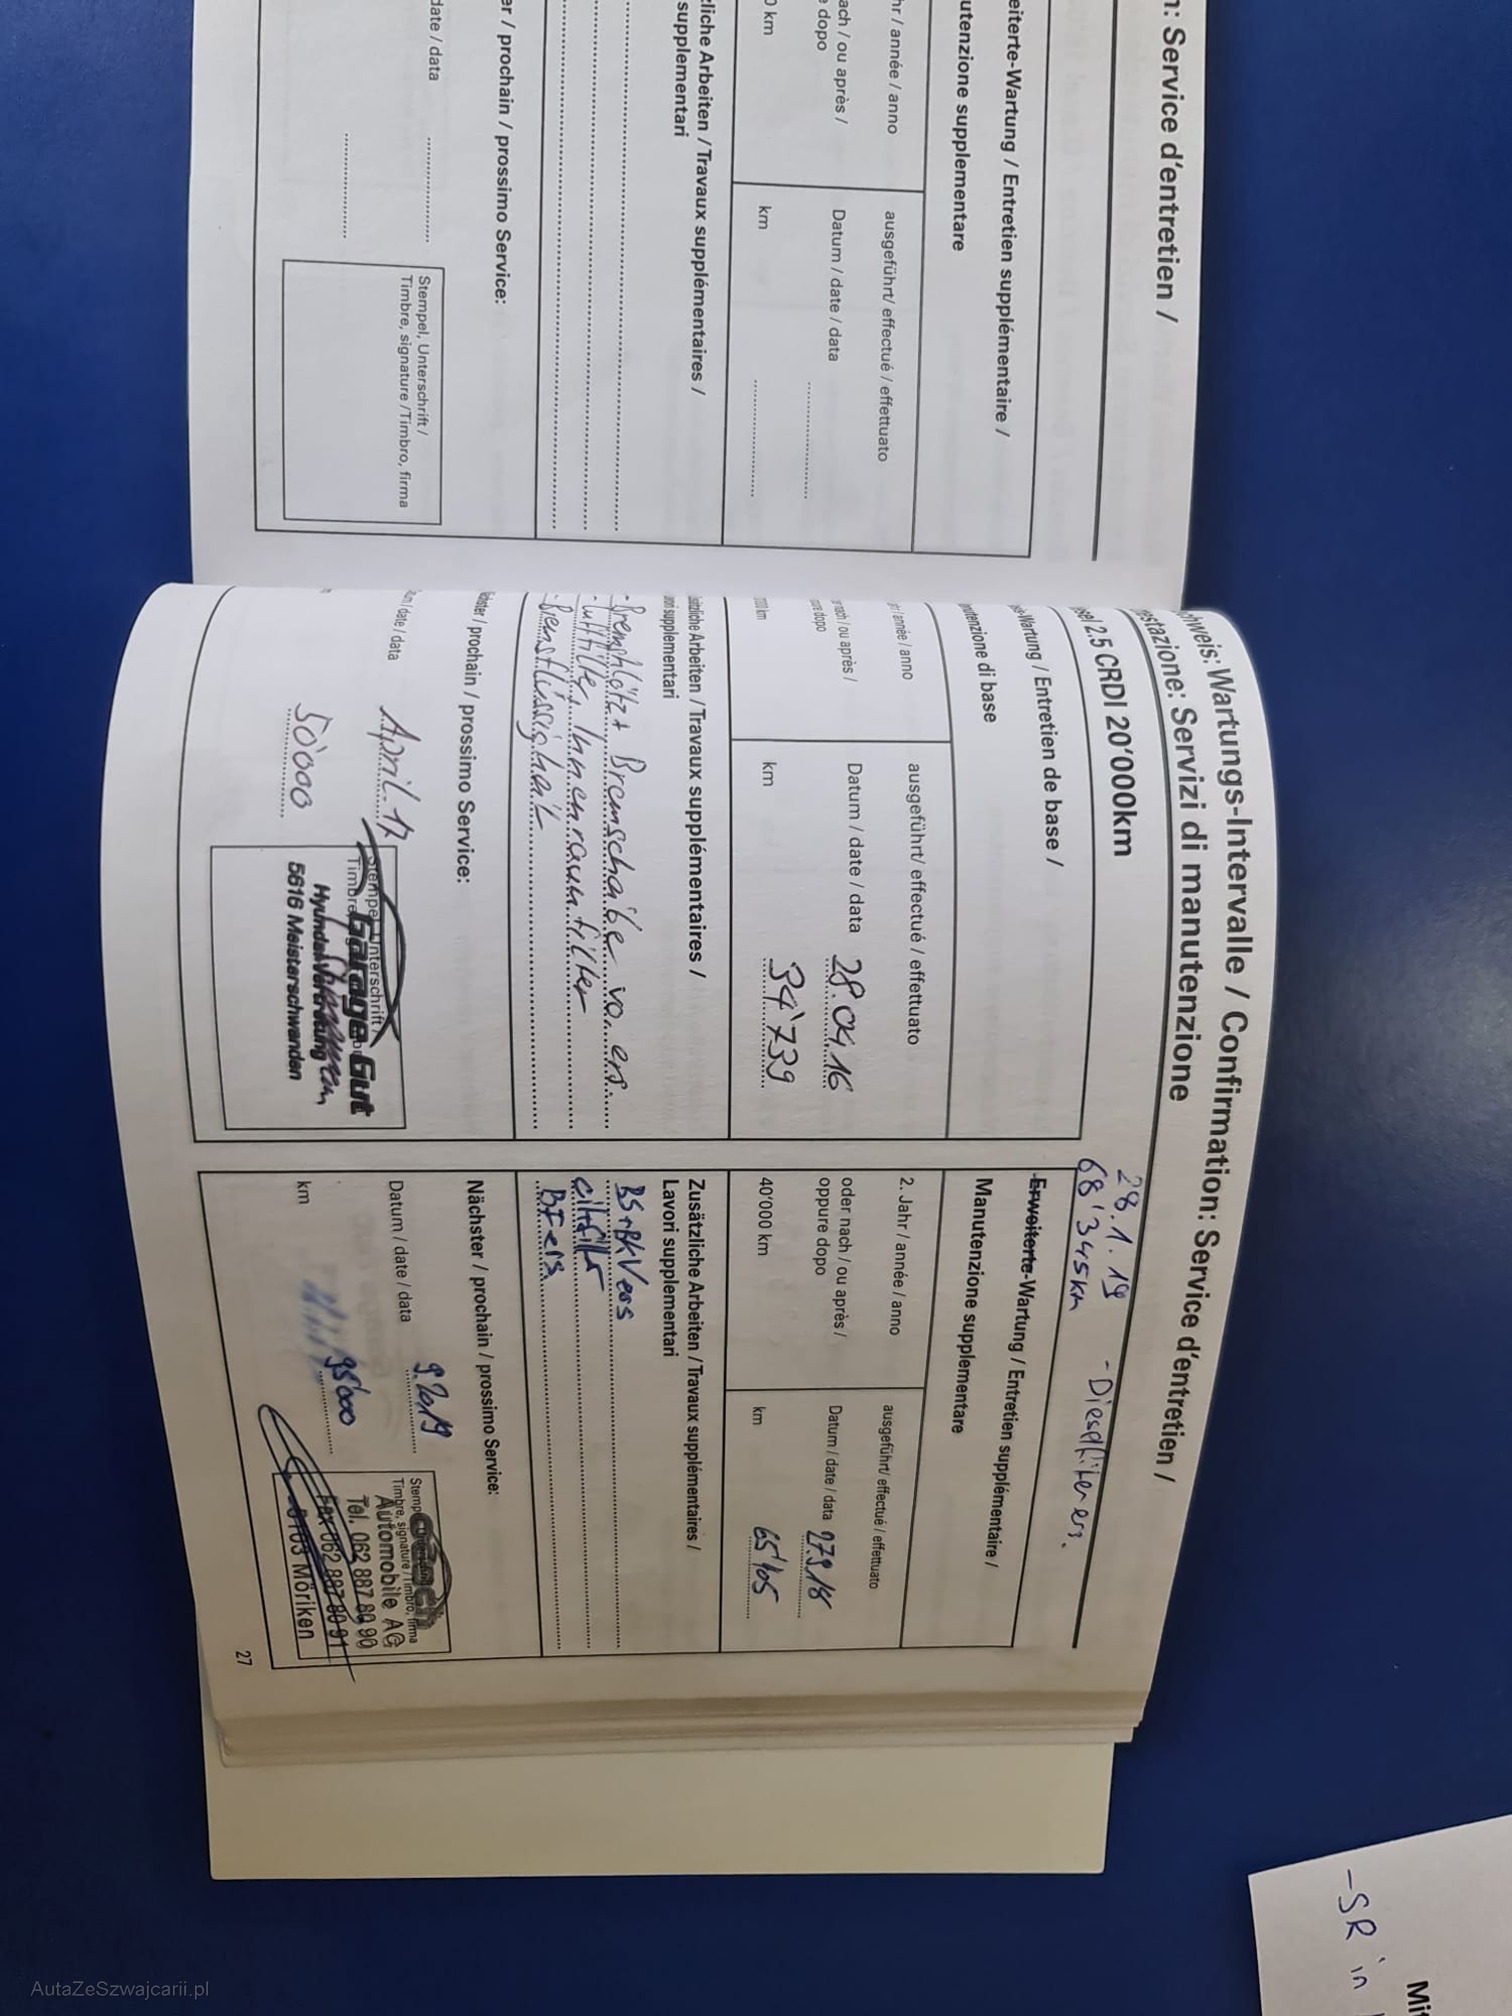 n: Service d'entretien /
eiterte-Wartung / Entretien supplémentaire /
utenzione supplementare
hr / année / anno
ach / ou après /
e dopo
0 km
ausgeführt/ effectué / effettuato
Datum / date / data
km
zliche Arbeiten / Travaux supplémentaires /
supplementari
er / prochain / prossimo Service:
date / data
Stempel, Unterschrift /
Timbre, signature / Timbro, firma
hweis: Wartungs-Intervalle / Confirmation: Service d'entretien /
estazione: Servizi di manutenzione
sel 2.5 CRDI 20'000km
28.1.19 - Dieselfilter ers.
68'345km
-Wartung / Entretien de base /
nutenzione di base
r / année / anno
r nach / ou après /
ure dopo
'000 km
ausgeführt/ effectué / effettuato
Datum / date / data 28.04.16
km 34'739
sätzliche Arbeiten / Travaux supplémentaires /
vori supplementari
- Bremsklötz+ Bremscheibe vo. ers.
- Luftfilter, Innenraumfilter
- Bremsflüssigkeit
chster / prochain / prossimo Service:
tum / date / data April. 17
50'000
Stempel, Unterschrift /
Timbre
Garage Gut
Hyundai-Vertretung
5616 Meisterschwanden
Erweiterte-Wartung / Entretien supplémentaire /
Manutenzione supplementare
2. Jahr / année / anno
oder nach / ou après /
oppure dopo
40'000 km
ausgeführt/ effectué / effettuato
Datum / date / data 27.9.18
km 65'105
Zusätzliche Arbeiten / Travaux supplémentaires /
Lavori supplementari
BS+BKV ers
BF ers
Nächster / prochain / prossimo Service:
Datum / date / data 9.2019
km 95'000
Timbre, signature / Timbro, firma
Automobile AG
Tel. 062 887 80 90
Fax 062 887 80 91
5103 Möriken
27
Mit
-SR in
AutaZeSzwajcarii.pl